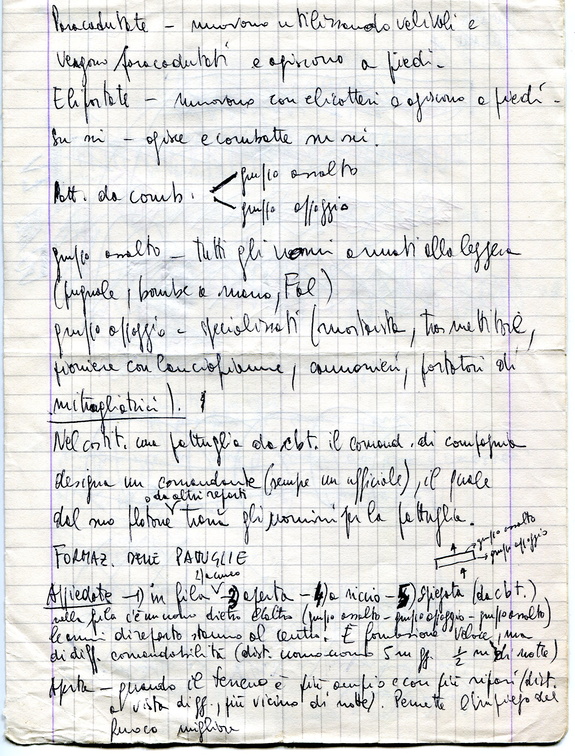 Paracadutate – muovono utilizzando velivoli e
vengono paracadutati e agiscono a piedi.
Eliportate – muovono con elicotteri e agiscono a piedi.
Su sci – agisce e combatte su sci.
Patt. da comb.
gruppo assalto
gruppo appoggio
gruppo assalto – tutti gli uomini armati alla leggera
(pugnale, bombe a mano, Fal)
gruppo appoggio – specializzati (mortaista, trasmettitore,
pioniere con lanciafiamme, cannonieri, portatori di
mitragliatrici).
Nel costit. una pattuglia da cbt. il comand. di compagnia
designa un comandante (sempre un ufficiale), il quale
o da altri reparti
dal suo plotone trarrà gli uomini per la pattuglia.
gruppo assalto
gruppo appoggio
FORMAZ. DELLE PATTUGLIE
2) a cuneo
Appiedate – 1) in fila 3) aperta – 4) a riccio – 5) spiegata (da cbt.)
nella fila c'è un uomo dietro l'altro (gruppo assalto – gruppo appoggio – gruppo assalto)
le armi di reparto stanno al centro. È formazione veloce, ma
di diff. comandabilità (dist. uomo-uomo 5 m gg. 1/2 m di notte)
Aperta – quando il terreno è più ampio e con più ripari (dist.
a vista di gg., più vicino di notte). Permette l'impiego del
fuoco migliore